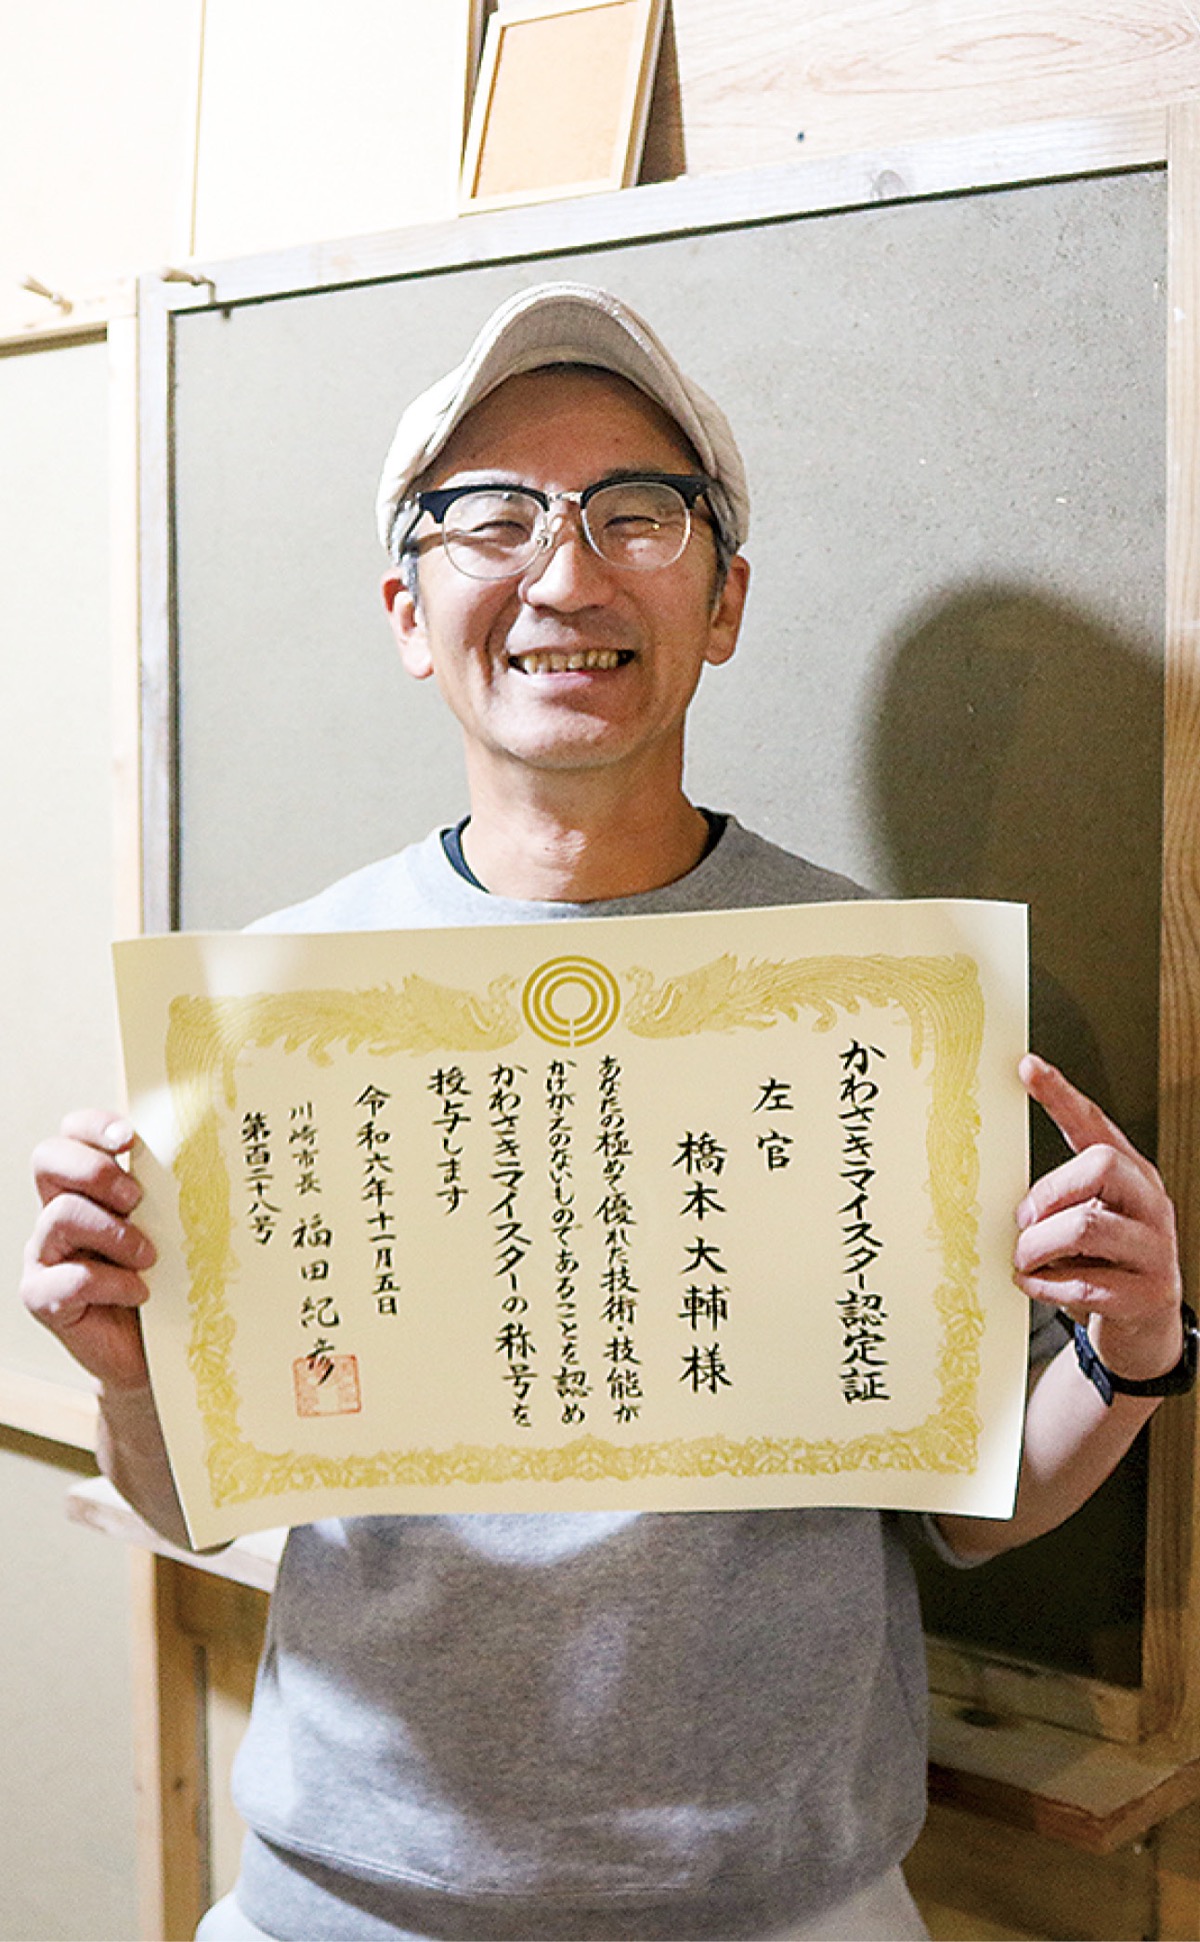 かわさきマイスター認定証
左官
橋本大輔様
あなたの極めて優れた技術・技能が
かけがえのないものであることを認め
かわさきマイスターの称号を
授与します
令和六年十一月五日
川崎市長 福田紀彦
第百二十八号